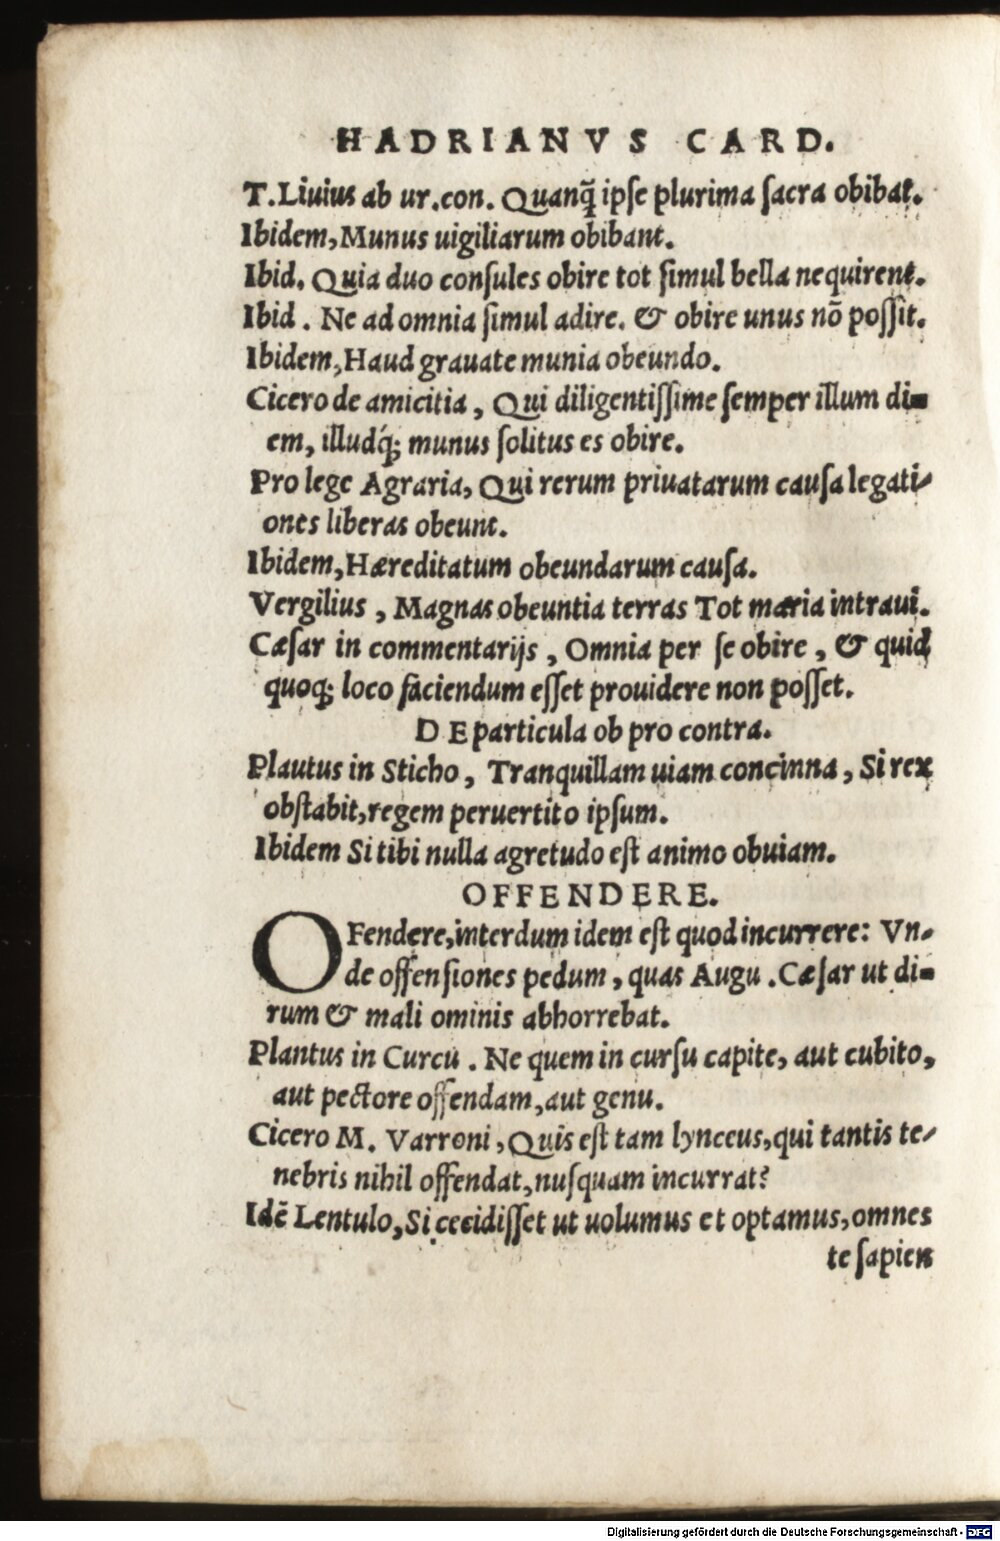 HADRIANVS CARD.
T. Liuius ab ur. con. Quanq̃ ipſe plurima ſacra obibat.
Ibidem, Munus uigiliarum obibant.
Ibid. Quia duo conſules obire tot ſimul bella nequirent.
Ibid. Ne ad omnia ſimul adire. & obire unus nõ poſſit.
Ibidem, Haud grauate munia obeundo.
Cicero de amicitia, Qui diligentiſſime ſemper illum di-
em, illudq́; munus ſolitus es obire.
Pro lege Agraria, Qui rerum priuatarum cauſa legati-
ones liberas obeunt.
Ibidem, Hæreditatum obeundarum cauſa.
Vergilius, Magnas obeuntia terras Tot maria intraui.
Cæſar in commentarijs, Omnia per ſe obire, & quid
quoq; loco faciendum eſſet prouidere non poſſet.
DE particula ob pro contra.
Plautus in Sticho, Tranquillam uiam concinna, Si rex
obſtabit, regem peruertito ipſum.
Ibidem Si tibi nulla agretudo eſt animo obuiam.
OFFENDERE.
OFendere, interdum idem eſt quod incurrere: Vn-
de offenſiones pedum, quas Augu. Cæſar ut di-
rum & mali ominis abhorrebat.
Plantus in Curcu. Ne quem in curſu capite, aut cubito,
aut pectore offendam, aut genu.
Cicero M. Varroni, Quis eſt tam lynceus, qui tantis te-
nebris nihil offendat, nuſquam incurrat?
Idẽ Lentulo, Si cecidiſſet ut uolumus et optamus, omnes
te ſapien
Digitalisierung gefördert durch die Deutsche Forschungsgemeinschaft - DFG